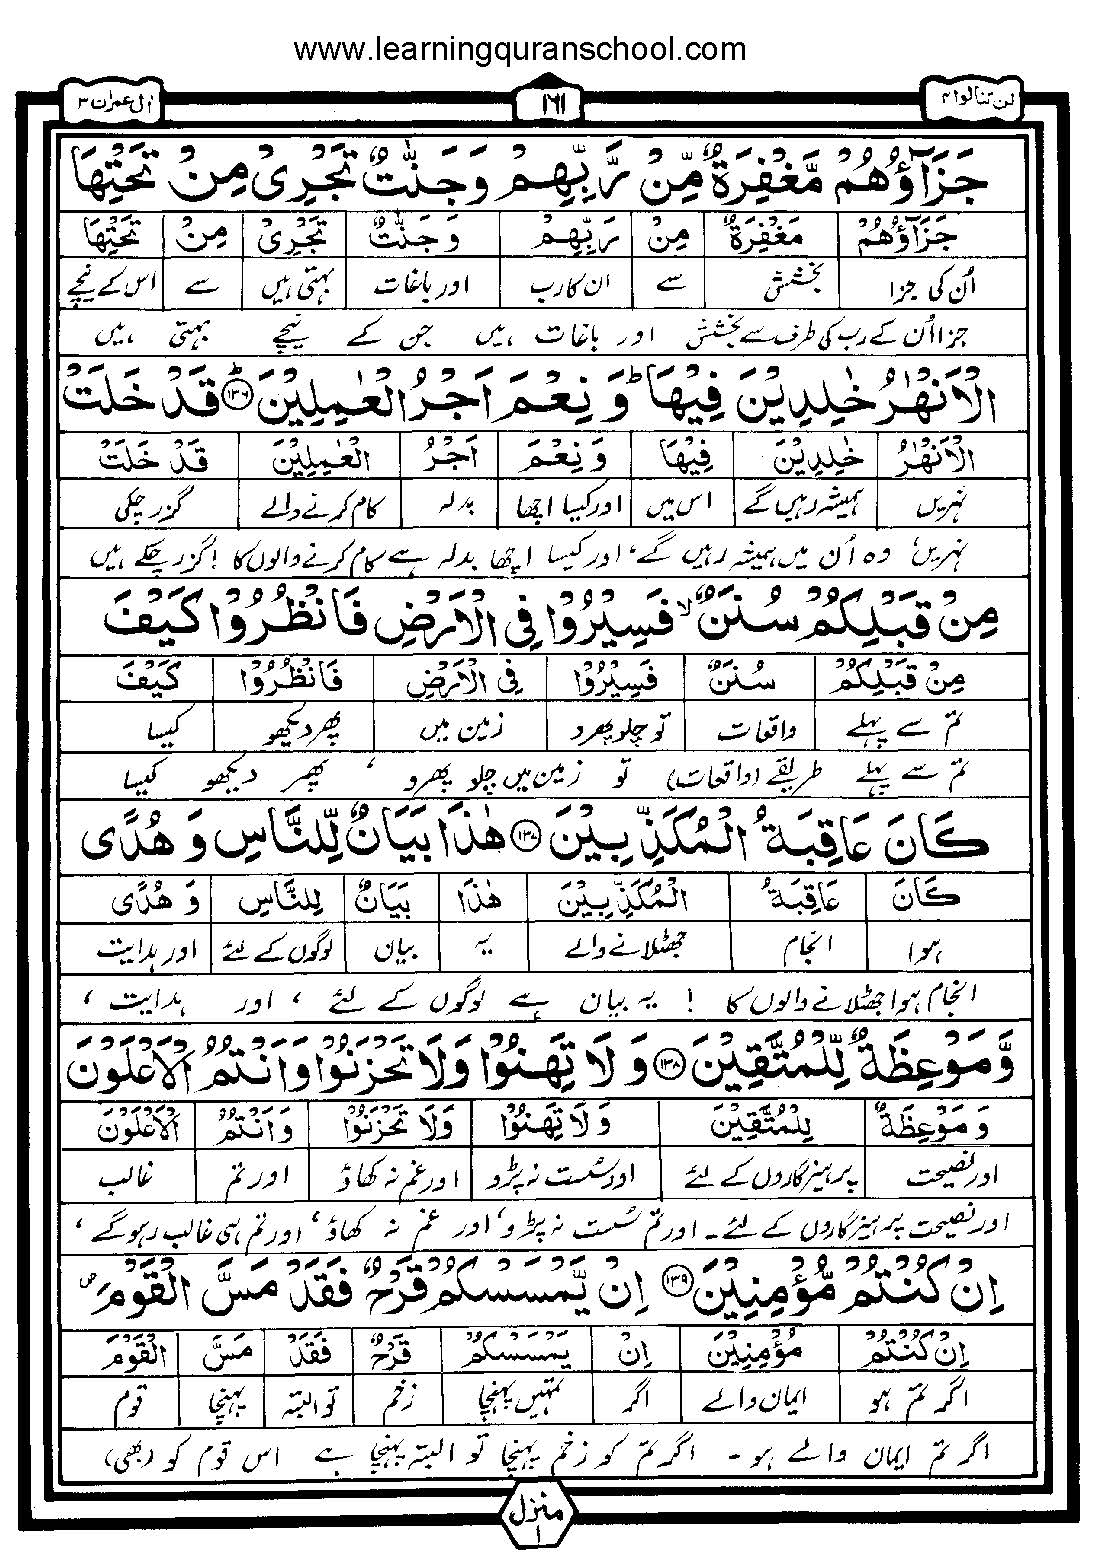 www.learningquranschool.com
لن تنالوا ۴
۱۶۱
اٰل عمران ۳
جَزَآؤُهُمْ مَّغْفِرَةٌ مِّنْ رَّبِّهِمْ وَجَنّٰتٌ تَجْرِیْ مِنْ تَحْتِهَا
جَزَآؤُهُمْ مَغْفِرَةٌ مِنْ رَبِّهِمْ وَجَنّٰتٌ تَجْرِیْ مِنْ تَحْتِهَا
اُن کی جزا بخشش سے ان کا رب اور باغات بہتی ہیں سے اس کے نیچے
جزا اُن کے رب کی طرف سے بخشش اور باغات ہیں جن کے نیچے بہتی ہیں
الْاَنْهٰرُ خٰلِدِیْنَ فِیْهَا ؕ وَ نِعْمَ اَجْرُ الْعٰمِلِیْنَ ؕ ۱۳۶ قَدْ خَلَتْ
الْاَنْهٰرُ خٰلِدِیْنَ فِیْهَا وَ نِعْمَ اَجْرُ الْعٰمِلِیْنَ قَدْ خَلَتْ
نہریں ہمیشہ رہیں گے اس میں اور کیا اچھا بدلہ کام کرنے والے گزر چکی
نہریں، وہ اُن میں ہمیشہ رہیں گے، اور کیسا اچھا بدلہ ہے کام کرنے والوں کا! گزر چکے ہیں
مِنْ قَبْلِكُمْ سُنَنٌ ۙ فَسِیْرُوْا فِی الْاَرْضِ فَانْظُرُوْا كَیْفَ
مِنْ قَبْلِكُمْ سُنَنٌ فَسِیْرُوْا فِی الْاَرْضِ فَانْظُرُوْا كَیْفَ
تم سے پہلے واقعات تو چلو پھرو زمین میں پھر دیکھو کیسا
تم سے پہلے طریقے (واقعات) تو زمین میں چلو پھرو ، پھر دیکھو کیسا
كَانَ عَاقِبَةُ الْمُكَذِّبِیْنَ ۱۳۷ هٰذَا بَیَانٌ لِّلنَّاسِ وَ هُدًی
كَانَ عَاقِبَةُ الْمُكَذِّبِیْنَ هٰذَا بَیَانٌ لِلنَّاسِ وَ هُدًی
ہوا انجام جھٹلانے والے یہ بیان لوگوں کے لئے اور ہدایت
انجام ہوا جھٹلانے والوں کا ! یہ بیان ہے لوگوں کے لئے ، اور ہدایت ،
وَّ مَوْعِظَةٌ لِّلْمُتَّقِیْنَ ۱۳۸ وَ لَا تَهِنُوْا وَلَا تَحْزَنُوْا وَاَنْتُمُ الْاَعْلَوْنَ
وَ مَوْعِظَةٌ لِلْمُتَّقِیْنَ وَ لَا تَهِنُوْا وَلَا تَحْزَنُوْا وَاَنْتُمُ الْاَعْلَوْنَ
اور نصیحت پرہیزگاروں کے لئے اور سُست نہ پڑو اور غم نہ کھاؤ اور تم غالب
اور نصیحت پرہیزگاروں کے لئے۔ اور تم سُست نہ پڑو، اور غم نہ کھاؤ، اور تم ہی غالب رہو گے ،
اِنْ كُنْتُمْ مُّؤْمِنِیْنَ ۱۳۹ اِنْ یَّمْسَسْكُمْ قَرْحٌ فَقَدْ مَسَّ الْقَوْمَ
اِنْ كُنْتُمْ مُؤْمِنِیْنَ اِنْ یَمْسَسْكُمْ قَرْحٌ فَقَدْ مَسَّ الْقَوْمَ
اگر تم ہو ایمان والے اگر تمہیں پہنچا زخم تو البتہ پہنچا قوم
اگر تم ایمان والے ہو ۔ اگر تم کو زخم پہنچا تو البتہ پہنچا ہے اس قوم کو (بھی)
منزل ۱